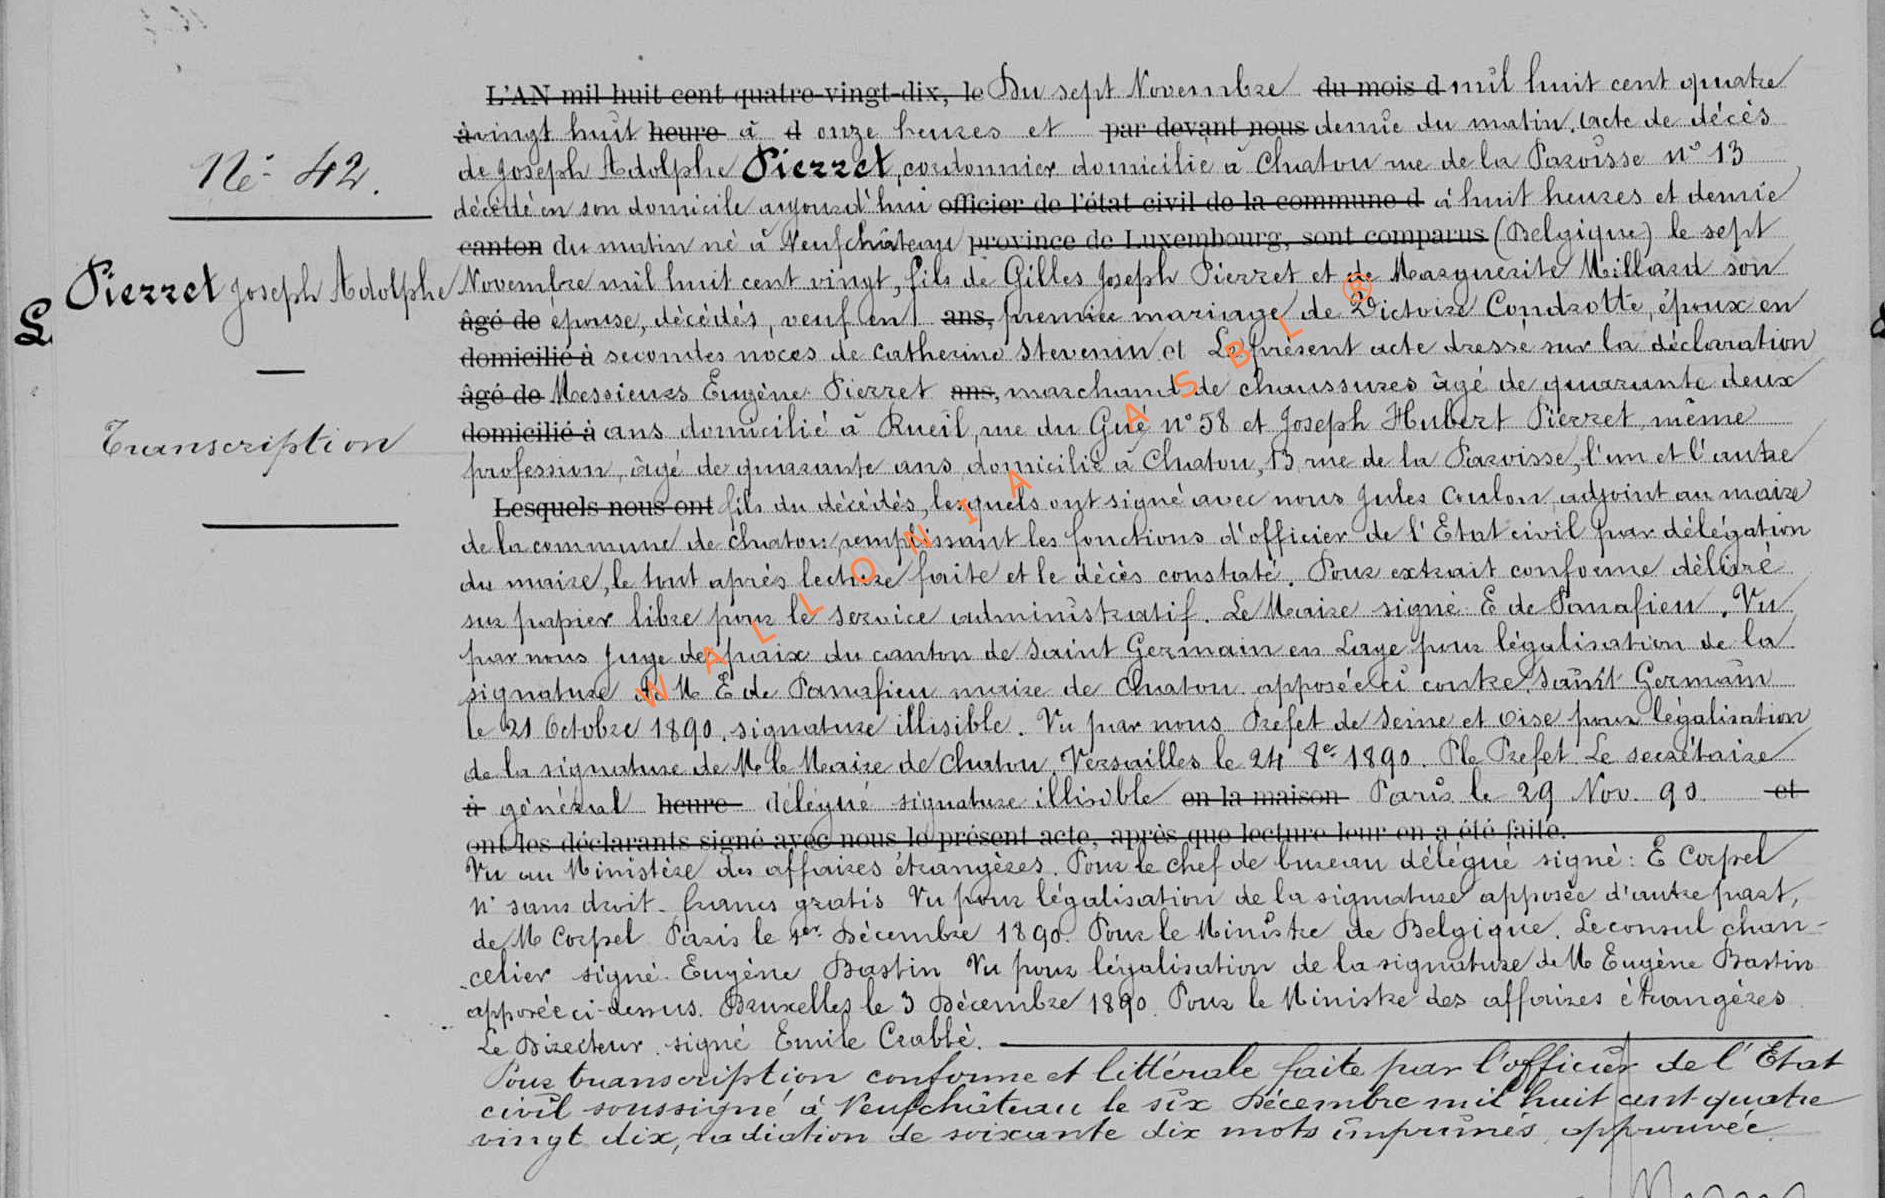 L'AN mil huit cent quatre-vingt-dix, le Du sept Novembre du mois d mil huit cent quatre
à vingt huit heure à d onze heures et par devant nous demie du matin. Acte de décès
de Joseph Adolphe Pierret, cordonnier domicilié à Chatou rue de la Paroisse n° 13
décédé en son domicile aujourd'hui officier de l'état civil de la commune d à huit heures et demie
canton du matin né à Neufchâteau province de Luxembourg, sont comparus (Belgique) le sept
Novembre mil huit cent vingt, fils de Gilles Joseph Pierret et de Marguerite Millard son
âgé de épouse, décédés, veuf en ans, premier mariage de Victoire Condrotte, époux en
domicilié à secondes noces de Catherine Stevenin et Le présent acte dressé sur la déclaration
âgé de Messieurs Eugène Pierret ans, marchand de chaussures âgé de quarante deux
domicilié à ans domicilié à Rueil, rue du Gué n° 58 et Joseph Hubert Pierret même
profession, âgé de quarante ans domicilié à Chatou, 13 rue de la Paroisse, l'un et l'autre
Lesquels nous ont fils du décédés, lesquels ont signé avec nous Jules Coulon, adjoint au maire
de la commune de Chatou remplissant les fonctions d'officier de l'Etat civil par délégation
du maire, le tout après lecture faite et le décès constaté. Pour extrait conforme délivré
sur papier libre pour le service administratif. Le Maire signé E de Panafieu. Vu
par nous Juge de paix du canton de Saint Germain en Laye pour légalisation de la
signature de M E de Panafieu maire de Chatou apposée ci contre. Saint Germain
le 21 Octobre 1890. signature illisible. Vu par nous Prefet de Seine et Oise pour légalisation
de la signature de M le Maire de Chatou. Versailles le 24 8e 1890. Ple Prefet Le secrétaire
à général heure délégué signature illisible en la maison Paris le 29 Nov. 90. et
ont les déclarants signé avec nous le présent acte, après que lecture leur en a été faite.
Vu au Ministère des affaires étrangères. Pour le chef de bureau délégué signé: E Corpel
N° sans droit. francs gratis Vu pour légalisation de la signature apposée d'autre part,
de M Corpel Paris le 1er Décembre 1890. Pour le Ministre de Belgique. Le consul chan-
celier signé Eugène Bastin Vu pour légalisation de la signature de M Eugène Bastin
apposée ci-dessus. Bruxelles le 3 Décembre 1890. Pour le Ministre des affaires étrangères
Le Directeur signé Emile Crabbé.
Pour transcription conforme et littérale faite par l'officier de l'Etat
civil soussigné à Neufchâteau le six Décembre mil huit cent quatre
vingt dix, radiation de soixante dix mots imprimés approuvée
N° 42.
Pierret Joseph Adolphe
Transcription
WALLONIA ASBL ®